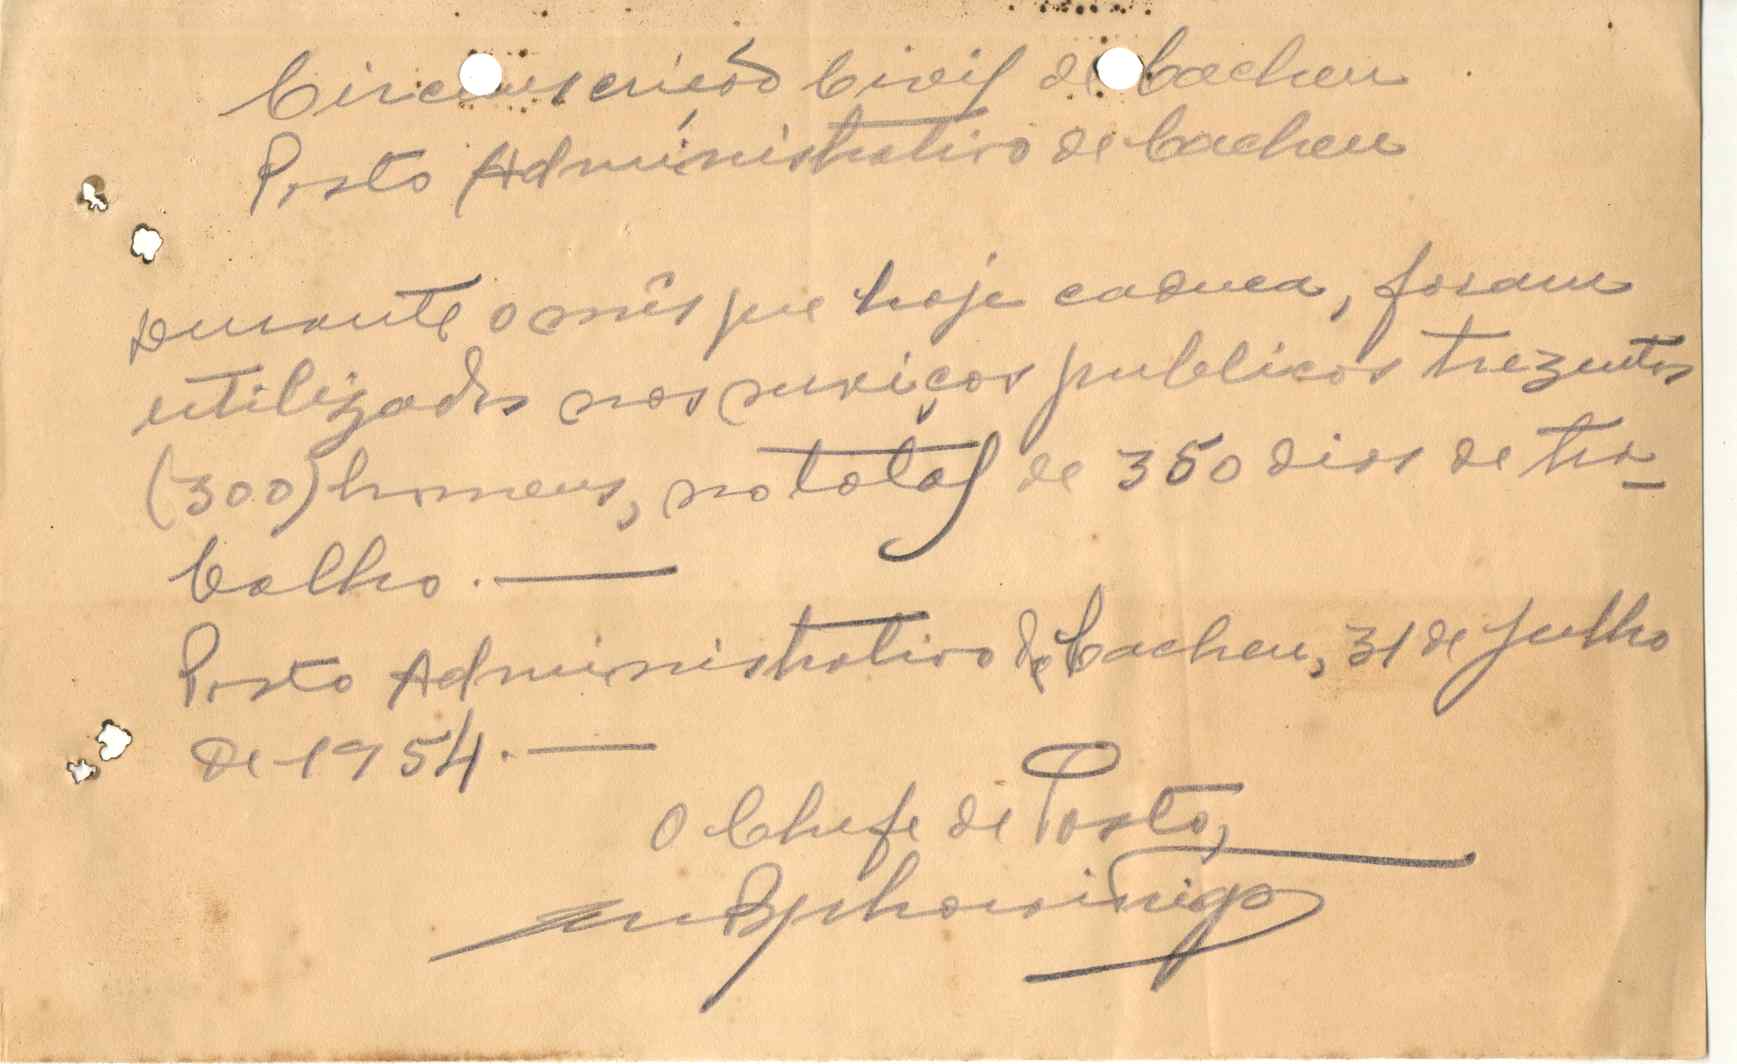 Circunscrição Civil de Cacheu
Posto Administrativo de Cacheu
Durante o mês que hoje caduca, foram
utilizados nos serviços publicos trezentos
(300) homens, no total de 350 dias de tra-
balho. —
Posto Administrativo de Cacheu, 31 de Julho
de 1954. —
O Chefe de Posto,